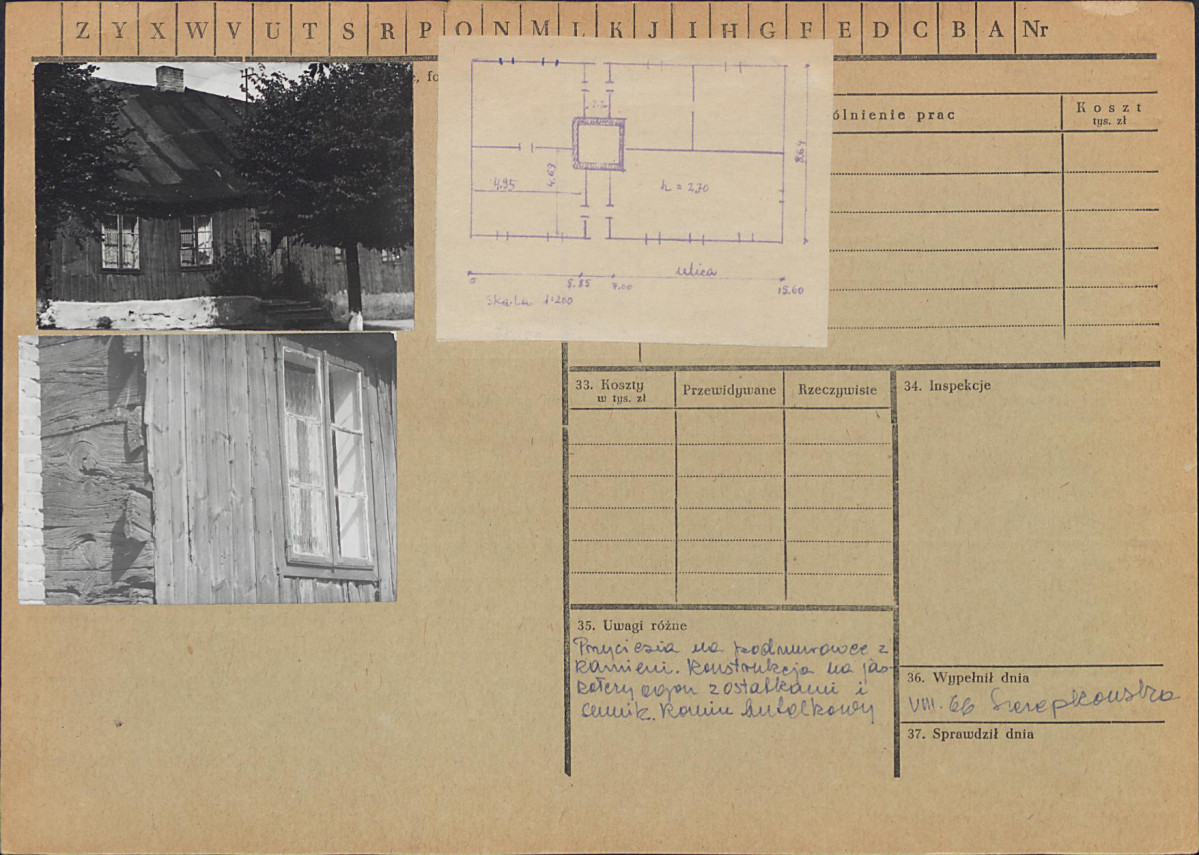 Z Y X W V U T S R P O N M L K J I H G F E D C B A Nr
fo
2.2
4.63
4.95
h = 2,70
8.64
ulica
0 5.85 7.00 15.60
Skala 1:200
ólnienie prac
Koszt
tys. zł
33. Koszty
w tys. zł
Przewidywane
Rzeczywiste
34. Inspekcje
35. Uwagi różne
Przyciesia na podmurówce z
kamieni. Konstrukcja na jas-
kółczy ogon z ostatkami i
Komin butelkowy
36. Wypełnił dnia
VIII. 66
37. Sprawdził dnia